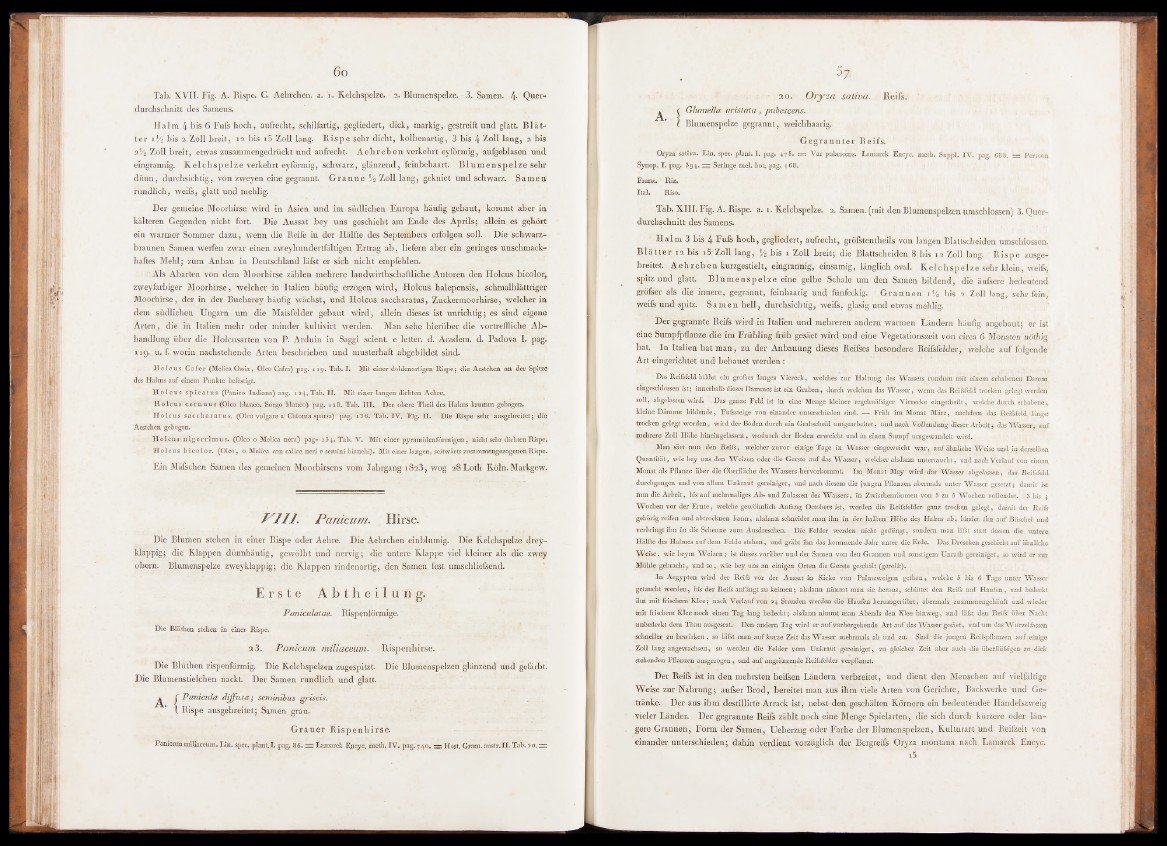 60
Tab. XVII. Fig. A. Rispe. C. Aehrchen. a. 1. Kelchspelze. 2. Blumenspelze. 3. Samen. 4. Quer-
durchschnitt des Samens.
Halm 4 bis 6 Fuſs hoch, aufrecht, schilfartig, gegliedert, dick, markig, gestreift und glatt. Blät-
ter 1½ bis 2 Zoll breit, 12 bis 15 Zoll lang. Rispe sehr dicht, kolbenartig, 3 bis 4 Zoll lang, 2 bis
2½ Zoll breit, etwas zusammengedrückt und aufrecht. Aehrchen verkehrt eyförmig, aufgeblasen und
eingrannig. Kelchspelze verkehrt eyförmig, schwarz, glänzend, feinbehaart. Blumenspelze sehr
dünn, durchsichtig, von zweyen eine gegrannt. Granne ½ Zoll lang, gekniet und schwarz. Samen
rundlich, weiſs, glatt und mehlig.
Der gemeine Moorhirse wird in Asien und im südlichen Europa häufig gebaut, kommt aber in
kälteren Gegenden nicht fort. Die Aussat bey uns geschieht am Ende des Aprils; allein es gehört
ein warmer Sommer dazu, wenn die Reife in der Hälfte des Septembers erfolgen soll. Die schwarz-
braunen Samen werfen zwar einen zweyhundertfältigen Ertrag ab, liefern aber ein geringes unschmack-
haftes Mehl; zum Anbau in Deutschland läſst er sich nicht empfehlen.
Als Abarten von dem Moorhirse zählen mehrere landwirthschaftliche Autoren den Holcus bicolor,
zweyfarbiger Moorhirse, welcher in Italien häufig erzogen wird, Holcus halepensis, schmalblättriger
Moorhirse, der in der Bucharey häufig wächst, und Holcus saccharatus, Zuckermoorhirse, welcher in
dem südlichen Ungarn um die Maisfelder gebaut wird, allein dieses ist unrichtig; es sind eigene
Arten, die in Italien mehr oder minder kultivirt werden. Man sehe hierüber die vortreffliche Ab-
handlung über die Holcusarten von P. Arduin in Saggi scient. e letter. d. Academ. d. Padova I. pag.
119. u. f. worin nachstehende Arten beschrieben und musterhaft abgebildet sind.
Holcus Cafer (Melica Ossia, Oleo Cafro) pag. 119. Tab. I. Mit einer doldenartigen Rispe; die Aestchen an der Spitze
des Halms auf einem Punkte befestigt.
Holcus spicatus (Panico Indiano) pag. 124. Tab. II. Mit einer langen dichten Aehre.
Holcus cernuus (Oleo bianco, Sorgo bianco) pag. 128. Tab. III. Der obere Theil des Halms krumm gebogen.
Holcus saccharatus. (Oleo volgare a Chioma sparsa) pag. 128. Tab. IV. Fig. II. Die Rispe sehr ausgebreitet; die
Aestchen gebogen.
Holcus nigerrimus. (Oleo o Melica nera) pag. 134. Tab. V. Mit einer pyramidenförmigen, nicht sehr dichten Rispe.
Holcus bicolor. (Oleo, o Melica con calice neri e semini bianchi). Mit einer langen, seitwärts zusammengezogenen Rispe.
Ein Mäſschen Samen des gemeinen Moorhirsens vom Jahrgang 1823, wog 28 Loth Köln. Markgew.
VIII. Panicum. Hirse.
Die Blumen stehen in einer Rispe oder Aehre. Die Aehrchen einblumig. Die Kelchspelze drey-
klappig; die Klappen dünnhäutig, gewölbt und nervig; die untere Klappe viel kleiner als die zwey
obern. Die Blumenspelze zweyklappig; die Klappen rindenartig, den Samen fest umschlieſsend.
Erste Abtheilung.
Paniculatae. Rispenförmige.
Die Blüthen stehen in einer Rispe.
23. Panicum miliaceum. Rispenhirse.
Die Blüthen rispenförmig. Die Kelchspelzen zugespitzt. Die Blumenspelzen glänzend und gefärbt.
Die Blumenstielchen nackt. Der Samen rundlich und glatt.
A. { Panicula diffusa; seminibus griseis.
Rispe ausgebreitet; Samen grau.
Grauer Rispenhirse.
Panicum miliaceum. Lin. spec. plant. I. pag. 86. = Lamarck Encyc. meth. IV. pag. 740. = Host. Gram. austr. II. Tab. 20. =
57
20. Oryza sativa. Reiſs.
A. { Glumella aristata, pubescens.
Blumenspelze gegrannt, weichhaarig.
Gegrannter Reiſs.
Oryza sativa. Lin. spec. plant. I. pag. 475. = Var pubescens. Lamarck Encyc. meth. Suppl. IV. pag. 668. = Persoon
Synop. I. pag. 394. = Seringe mel. bot. pag. 168.
Franz. Riz.
Ital. Riso.
Tab. XIII. Fig. A. Rispe. a. 1. Kelchspelze. 2. Samen. (mit den Blumenspelzen umschlossen) 3. Quer-
durchschnitt des Samens.
Halm 3 bis 4 Fuſs hoch, gegliedert, aufrecht, gröſstentheils von langen Blattscheiden umschlossen.
Blätter 12 bis 15 Zoll lang, ½ bis 1 Zoll breit; die Blattscheiden 8 bis 12 Zoll lang. Rispe ausge-
breitet. Aehrchen kurzgestielt, eingrannig, einsamig, länglich oval. Kelchspelze sehr klein, weiſs,
spitz und glatt. Blumenspelze eine gelbe Schale um den Samen bildend, die äuſsere bedeutend
gröſser als die innere, gegrannt, feinhaarig und fünfeckig. Grannen 1½ bis 2 Zoll lang, sehr fein,
weiſs und spitz. Samen hell, durchsichtig, weiſs, glasig und etwas mehlig.
Der gegrannte Reiſs wird in Italien und mehreren andern warmen Ländern häufig angebaut; er ist
eine Sumpfpflanze die im Frühling früh gesäet wird und eine Vegetationszeit von circa 6 Monaten nöthig
hat. In Italien hat man, zu der Anbauung dieses Reiſses besondere Reiſsfelder, welche auf folgende
Art eingerichtet und bebauet werden:
Das Reiſsfeld bildet ein groſses langes Viereck, welches zur Haltung des Wassers rundum mit einem erhabenen Damm
eingeschlossen ist; innerhalb dieses Dammes ist ein Graben, durch welchen das Wasser, wenn das Reiſsfeld trocken gelegt werden
soll, abgelassen wird. Das ganze Feld ist in eine Menge kleiner regelmäſsiger Vierecke eingetheilt, welche durch erhabene,
kleine Dämme bildende, Fuſssteige von einander unterschieden sind. — Früh im Monat März, nachdem das Reiſsfeld längst
trocken gelegt worden, wird der Boden durch ein Grabscheid umgearbeitet, und nach Vollendung dieser Arbeit, das Wasser, auf
mehrere Zoll Höhe hineingelassen, wodurch der Boden erweicht und in einen Sumpf umgewandelt wird.
Man säet nun den Reiſs, welcher zuvor einige Tage in Wasser eingeweicht war, auf ähnliche Weise und in derselben
Quantität, wie bey uns den Weitzen oder die Gerste auf das Wasser, welcher alsdann untertaucht, und nach Verlauf von einem
Monat als Pflanze über die Oberfläche des Wassers hervorkommt. Im Monat May wird das Wasser abgelassen, das Reiſsfeld
durchgangen und von allem Unkraut gereiniget, und nach diesem die jungen Pflanzen abermals unter Wasser gesetzt; damit ist
nun die Arbeit, bis auf mehrmaliges Ab- und Zulassen des Wassers, in Zwischenräumen von 5 zu 5 Wochen vollendet. 3 bis 4
Wochen vor der Ernte, welche gewöhnlich Anfang Octobers ist, werden die Reiſsfelder ganz trocken gelegt, damit der Reiſs
gehörig reifen und abtrocknen kann, alsdenn schneidet man ihn in der halben Höhe des Halms ab, bindet ihn auf Büschel und
verbringt ihn in die Scheune zum Ausdreschen. Die Felder werden nicht gedüngt, sondern man läſst statt dessen die untere
Hälfte des Halmes auf dem Felde stehen, und gräbt ihn das kommende Jahr unter die Erde. Das Dreschen geschieht auf ähnliche
Weise, wie beym Weizen; ist dieses vorüber und der Samen von den Grannen und sonstigem Unrath gereiniget, so wird er zur
Mühle gebracht, und so, wie bey uns an einigen Orten die Gerste geschält (gerollt).
In Aegypten wird der Reiſs vor der Aussat in Säcke von Palmzweigen gethan, welche 5 bis 6 Tage unter Wasser
getaucht werden, bis der Reiſs anfängt zu keimen; alsdann nimmt man sie heraus, schüttet den Reiſs auf Haufen, und bedeckt
ihn mit frischem Klee; nach Verlauf von 24 Stunden werden die Haufen herumgerührt, abermals zusammengehäuft und wieder
mit frischem Klee noch einen Tag lang bedeckt; alsdann nimmt man Abends den Klee hinweg, und läſst den Reiſs über Nacht
unbedeckt dem Thau ausgesezt. Den andern Tag wird er auf vorhergehende Art auf das Wasser gesäet, und um das Wurzelfassen
schneller zu bewirken, so läſst man auf kurze Zeit das Wasser mehrmals ab und zu. Sind die jungen Reiſspflanzen auf einige
Zoll lang angewachsen, so werden die Felder vom Unkraut gereiniget, zu gleicher Zeit aber auch die überflüſsigen zu dick
stehenden Pflanzen ausgezogen, und auf angränzende Reiſsfelder verpflanzt.
Der Reiſs ist in den mehrsten heiſsen Ländern verbreitet, und dient den Menschen auf vielfältige
Weise zur Nahrung; auſser Brod, bereitet man aus ihm viele Arten von Gerichte, Backwerke und Ge-
tränke. Der aus ihm destillirte Arrack ist, nebst den geschälten Körnern ein bedeutender Handelszweig
vieler Länder. Der gegrannte Reiſs zählt noch eine Menge Spielarten, die sich durch kürzere oder län-
gere Grannen, Form der Samen, Ueberzug oder Farbe der Blumenspelzen, Kulturart und Reifzeit von
einander unterschieden; dahin verdient vorzüglich der Bergreiſs Oryza montana nach Lamarck Encyc.
15